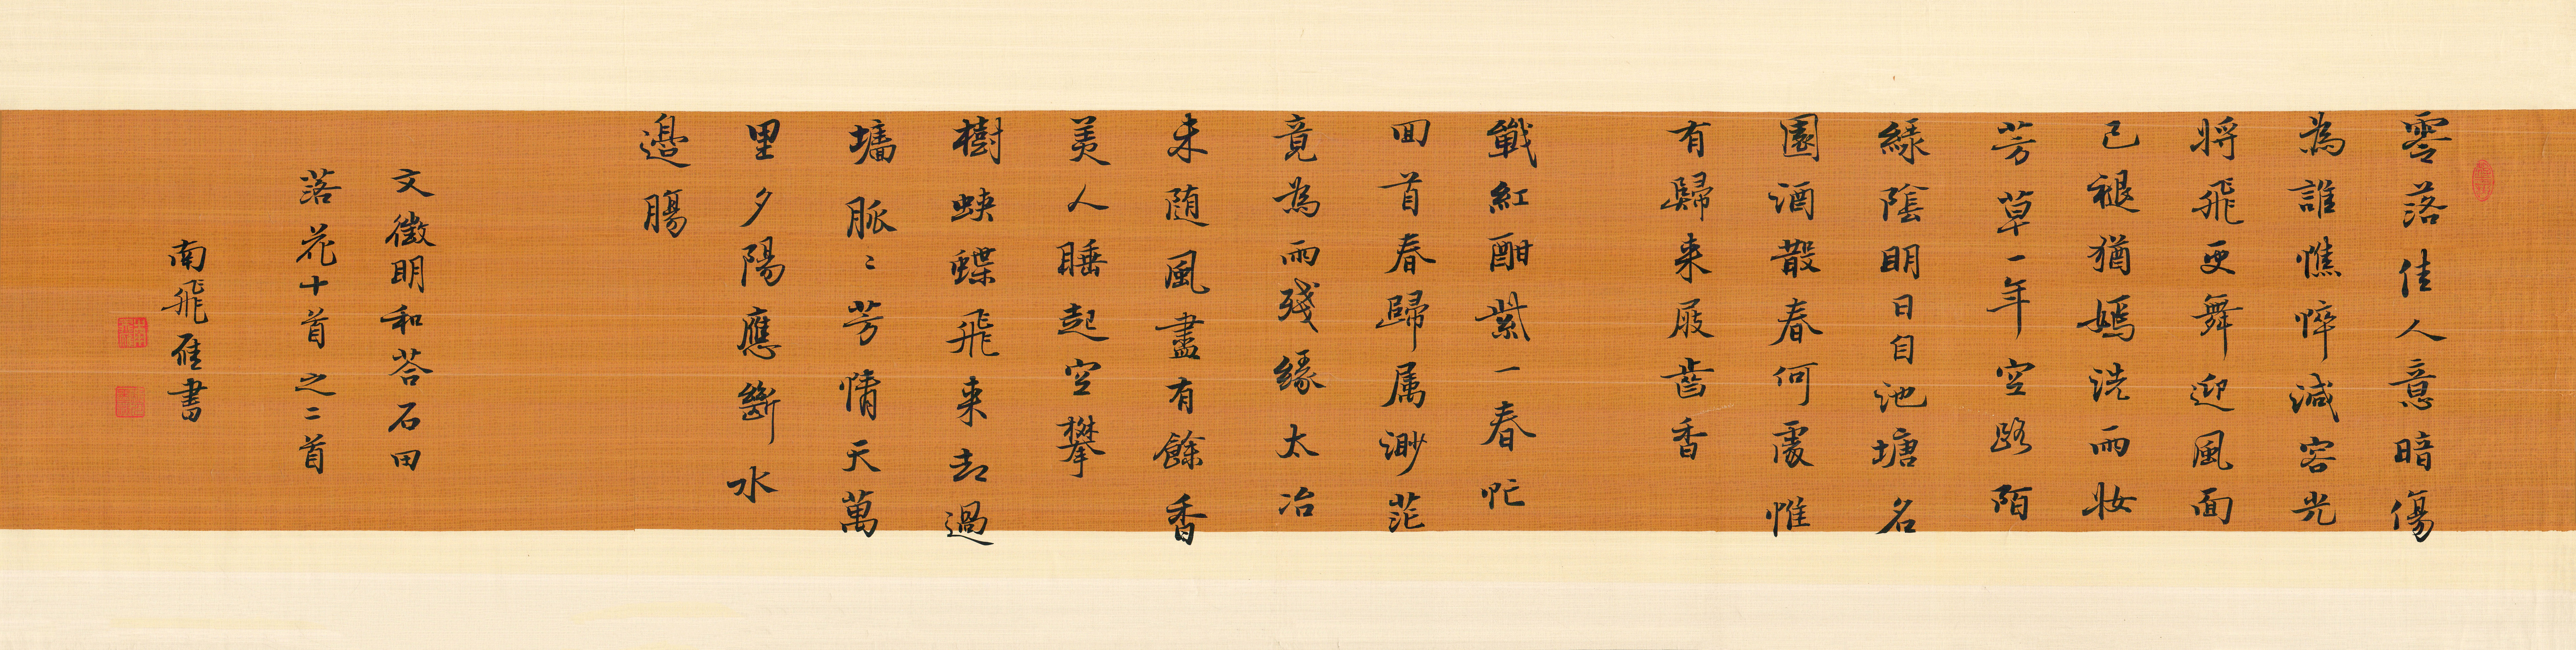 零落佳人意暗傷
為誰憔悴減容光
将飛更舞迎風面
已褪猶嫣洗雨妝
芳草一年空路陌
緑陰明日自池塘
名園酒散春何處惟
有歸来屐齒香
戰紅酣紫一春忙
回首春歸属渺茫
竟為雨殘緣太冶
未随風盡有餘香
美人睡起空攀
樹蛱蝶飛来却過
墻脈〻芳情天萬
里夕陽應斷水
邊腸
文徵明和荅石田
落花十首之二首
南飛雁書